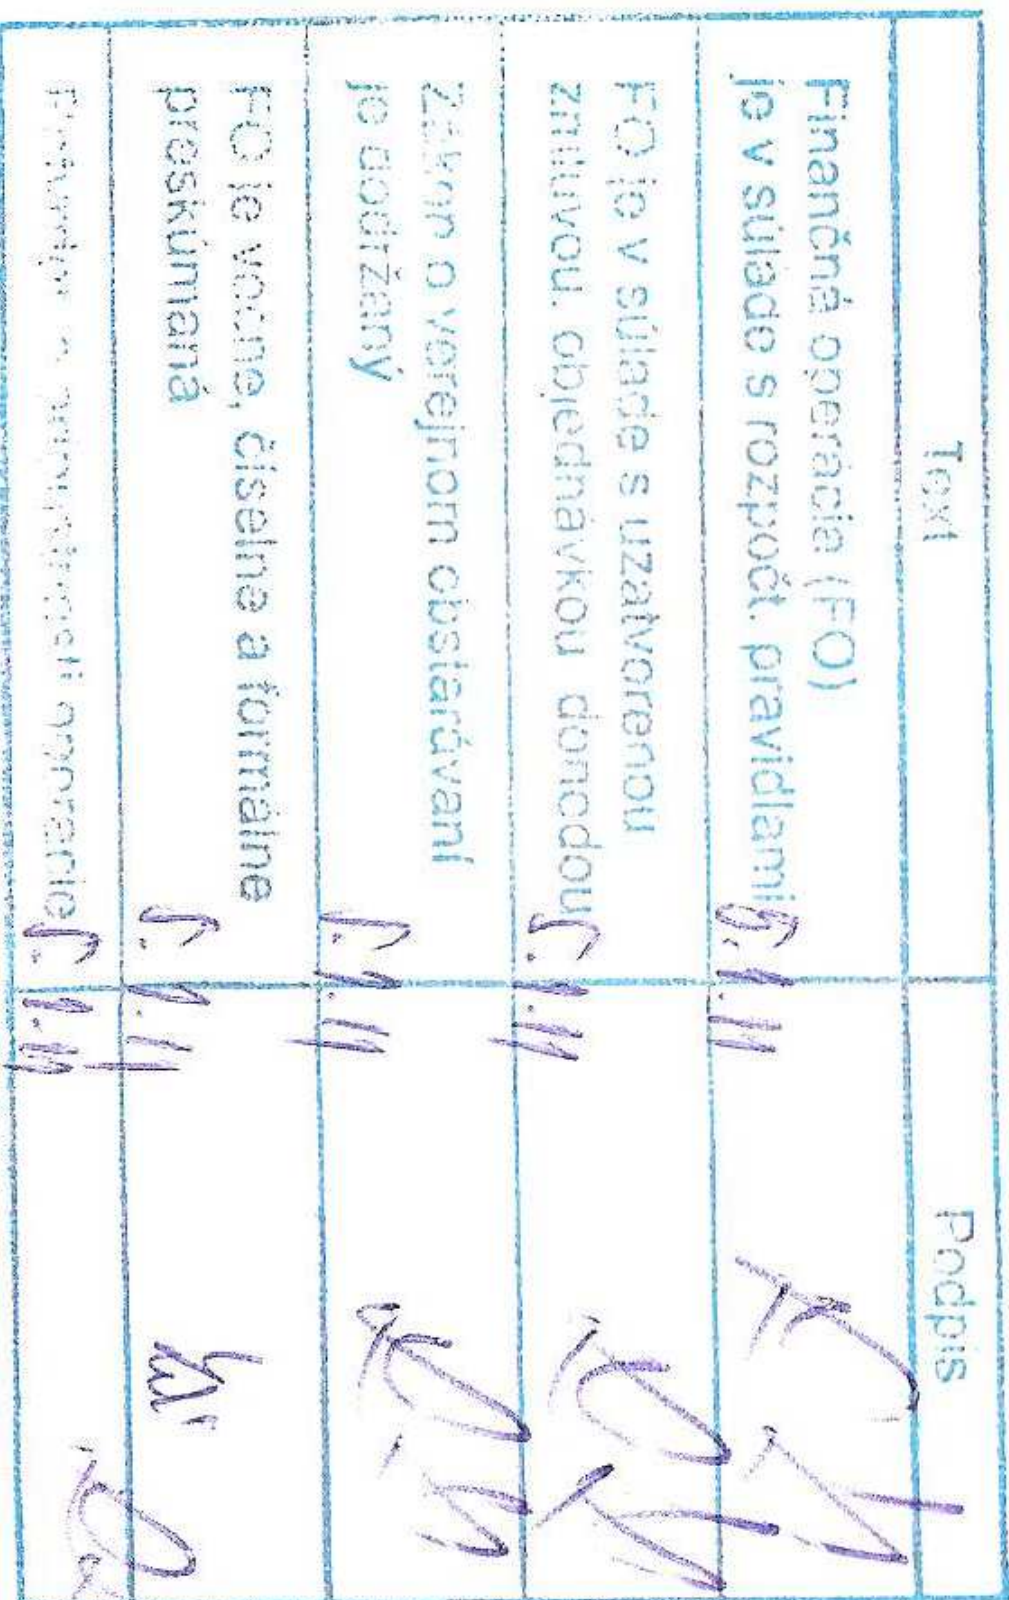 Text
Podpis
Finančná operácia (FO)
je v súlade s rozpočt. pravidlami
5.4.11
FO je v súlade s uzatvorenou
zmluvou, objednávkou dohodou
5.4.11
Zákon o verejnom obstarávaní
je dodržaný
5.4.11
FO je vecne, číselne a formálne
preskúmaná
5.4.11
operácie
5.4.11